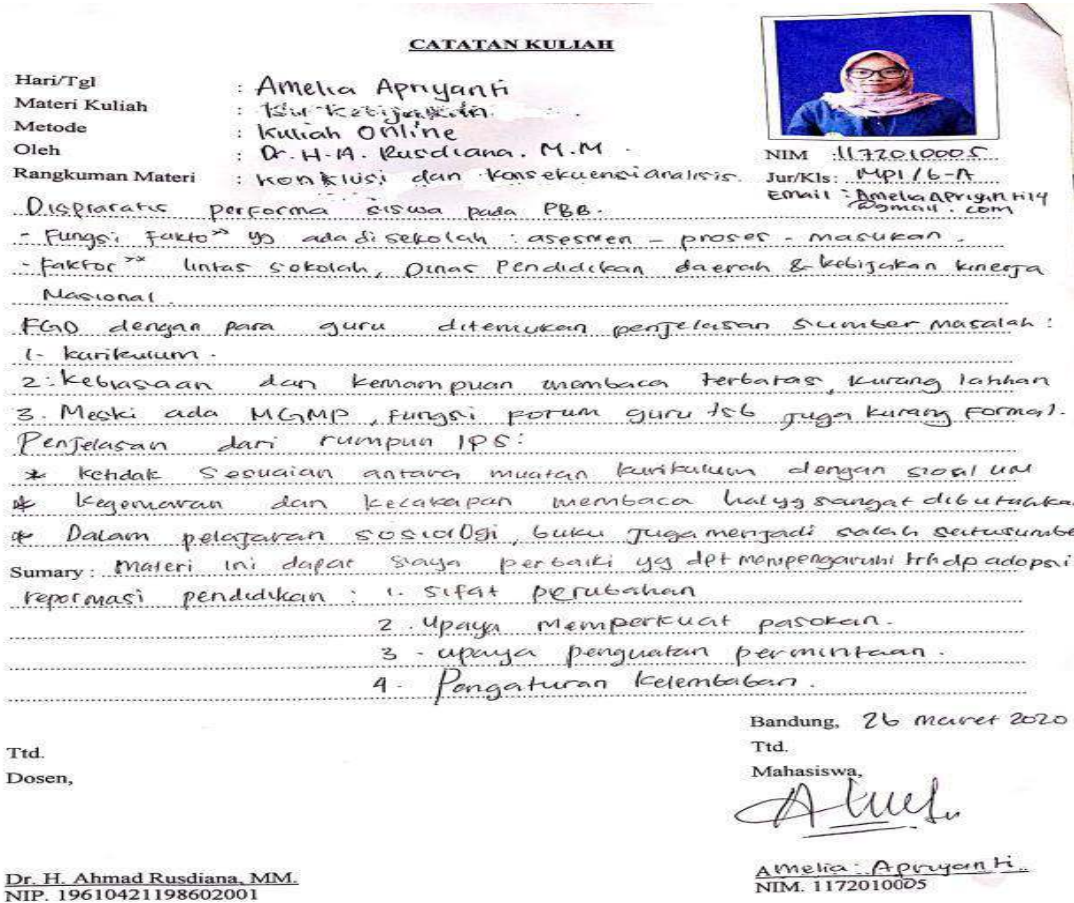 CATATAN KULIAH
Hari/Tgl : Amelia Apriyanti
Materi Kuliah : Isu Kebijakan
Metode : Kuliah Online
Oleh : Dr. H. A. Rusdiana. M.M.
Rangkuman Materi : Konklusi dan Konsekuensi analisis.
NIM : 1172010005
Jur/Kls: MPI/6-A
Email : Ameliaapriyanti14
@gmail.com
Dispraratis performa siswa pada PBB.
- Fungsi Fakto" yg ada di sekolah : asesmen - proses - masukan.
- faktor" lintas sekolah, Dinas Pendidikan daerah & kebijakan kinerja
Nasional.
FGD dengan para guru ditemukan penjelasan sumber masalah :
1- kurikulum.
2. Kebiasaan dan kemampuan membaca terbatas, kurang latihan
3. Meski ada MGMP, fungsi porum guru tsb juga kurang formal.
Penjelasan dari rumpun IPS:
* Ketidak Sesuaian antara muatan kurikulum dengan sioal UN
* Kegemaran dan kecakapan membaca hal yg sangat dibutuhka
* Dalam pelajaran sosiologi, buku juga menjadi salah satu sumbe
Sumary : Materi ini dapat saya perbaiki yg dpt mempengaruhi trhdp adopsi
repormasi pendidikan : 1. sifat perubahan
2. Upaya memperkuat pasokan.
3 - upaya penguatan permintaan.
4. Pengaturan Kelembaban.
Bandung, 26 maret 2020
Ttd.
Dosen,
Ttd.
Mahasiswa,
Dr. H. Ahmad Rusdiana, MM.
NIP. 19610421198602001
Amelia Apriyanti.
NIM. 1172010005